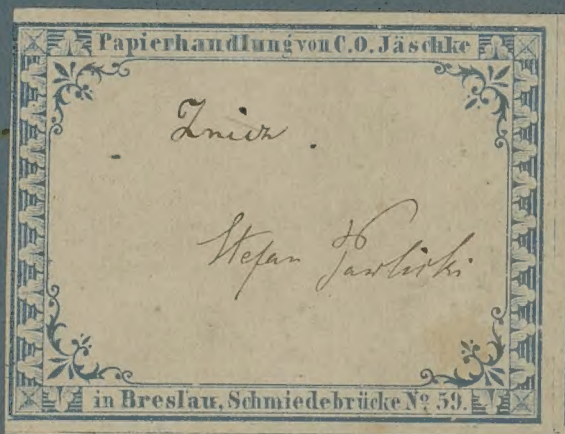 Papierhandlung von C. O. Jäschke
Znicz.
Stefan Pawlicki
in Breslau, Schmiedebrücke № 59.